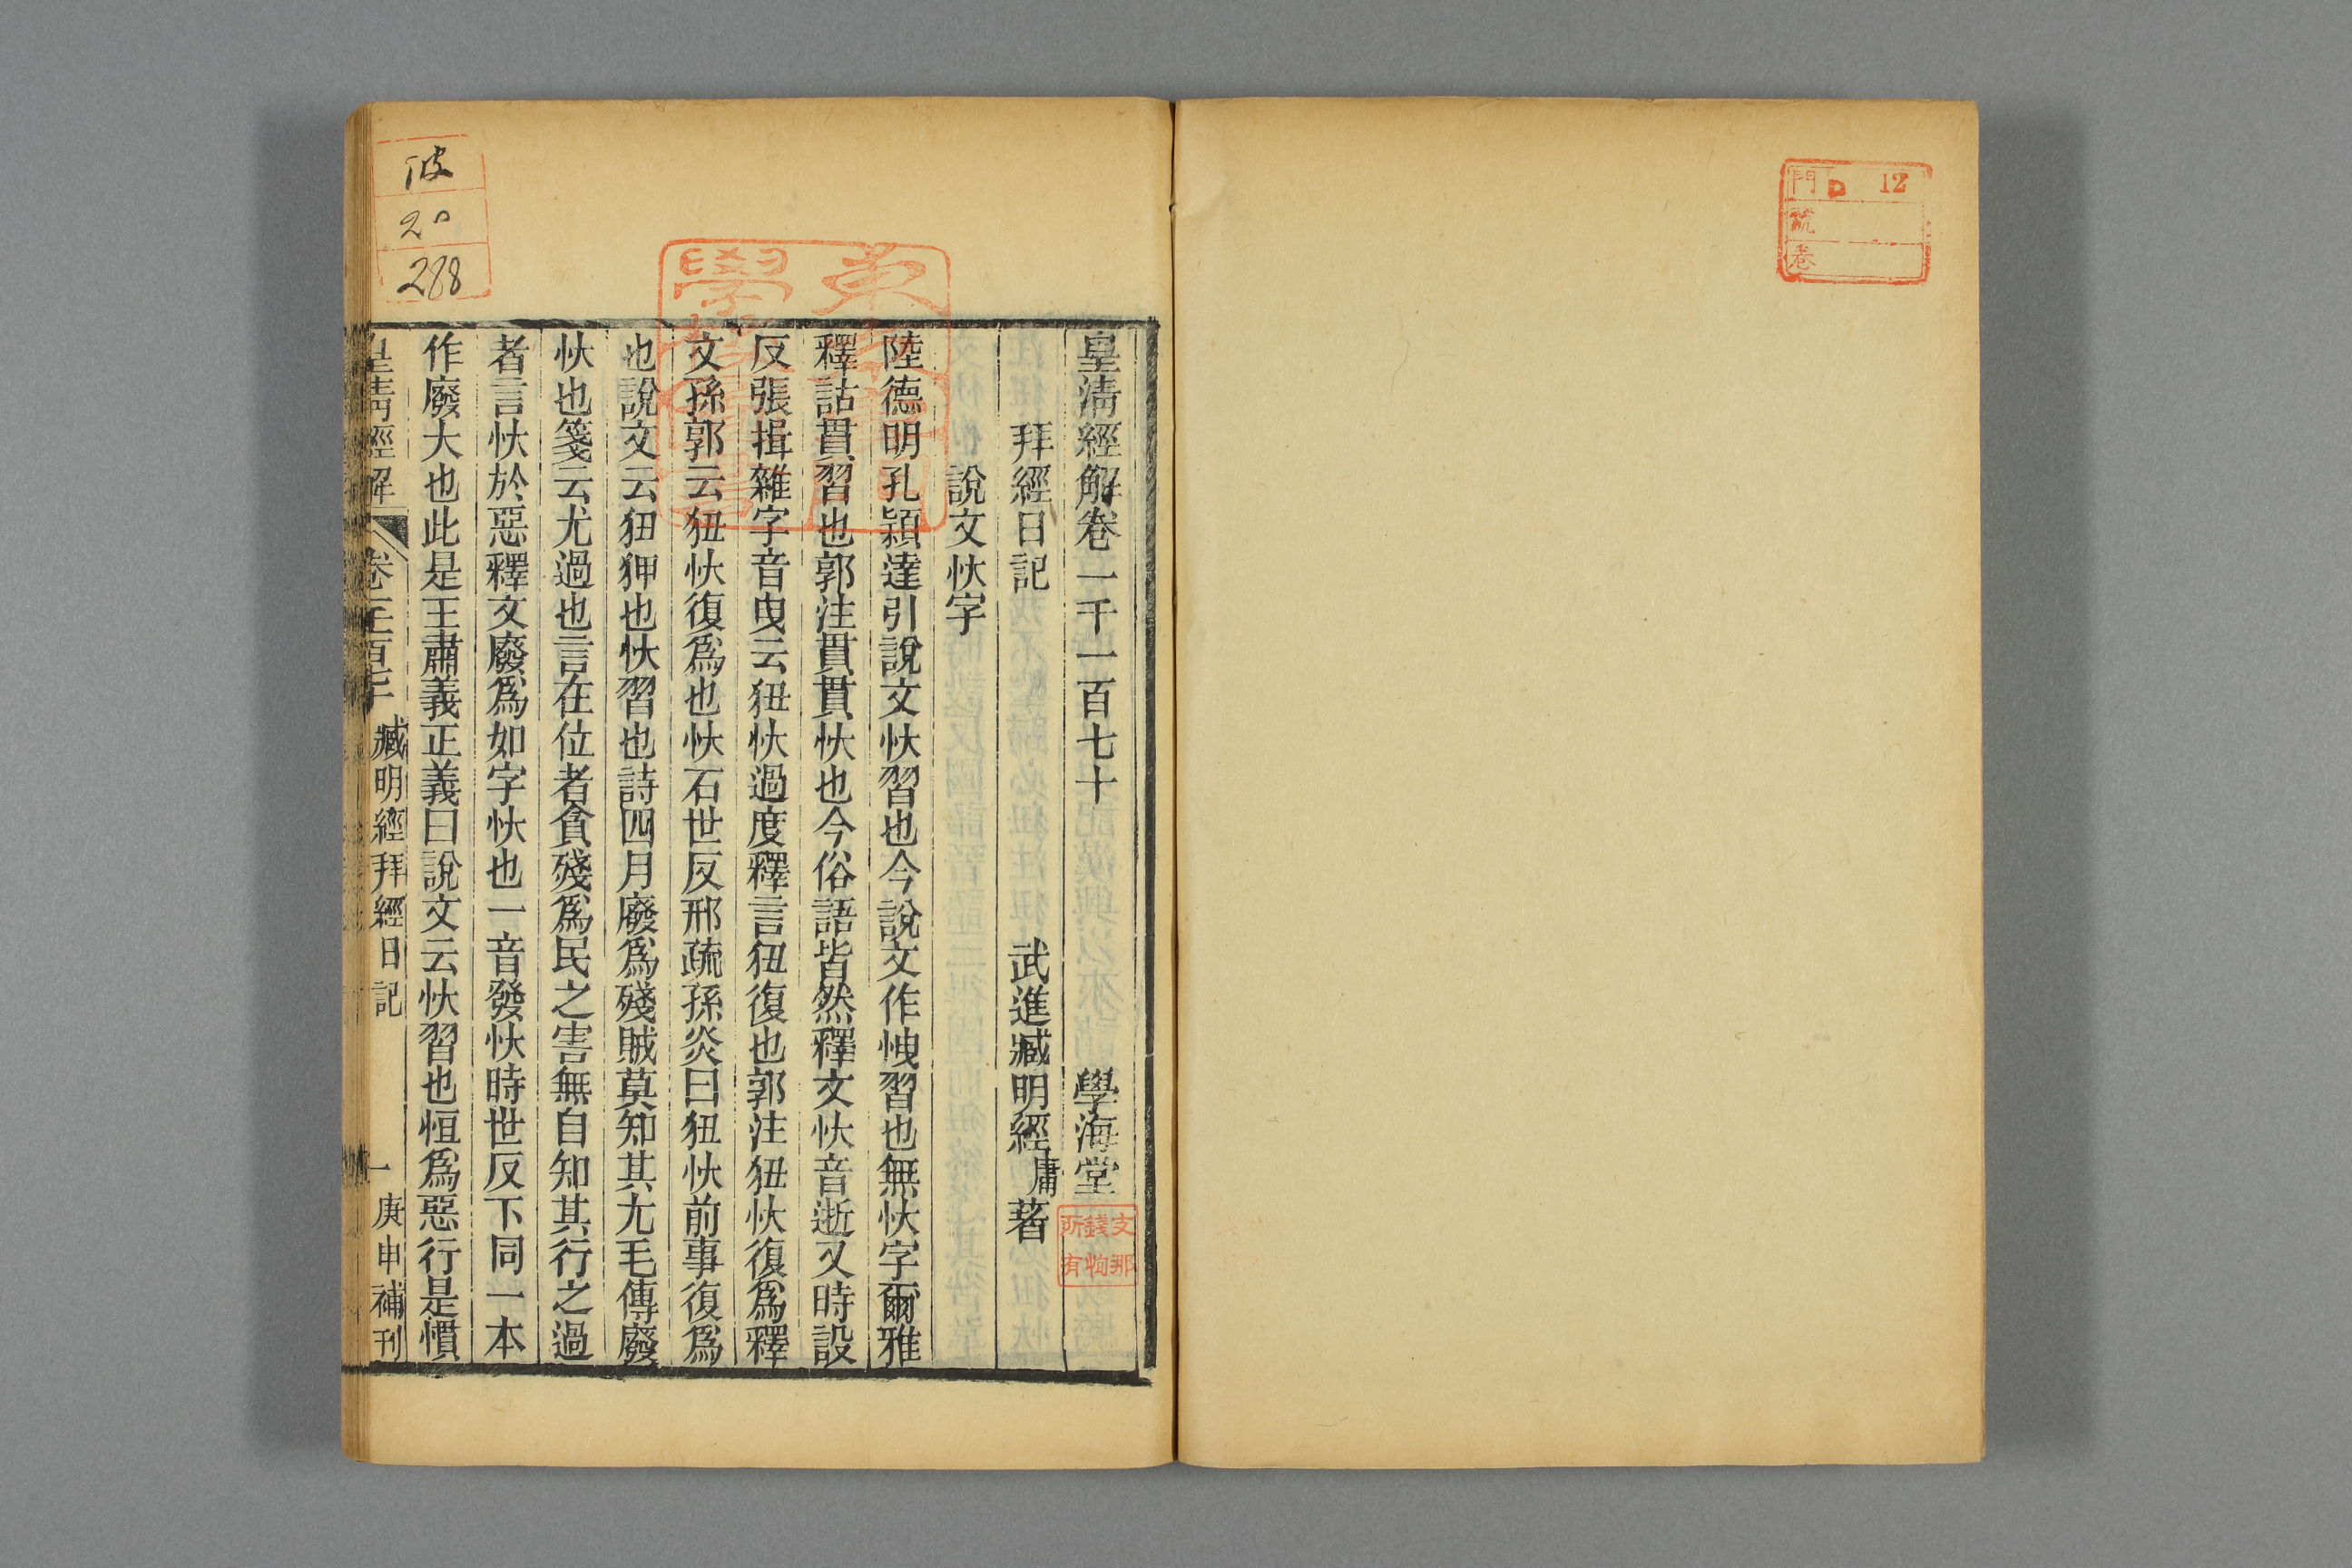 皇清經解卷一千一百七十
學海堂
拜經日記
武進臧明經庸著
說文忕字
陸德明孔穎達引說文忕習也今說文作愧習也無忕字爾雅
釋詁貫習也郭注貫貫忕也今俗語皆然釋文忕音逝又時設
反張揖雜字音曳云狃忕過度釋言狃復也郭注狃忕復爲釋
文孫郭云狃忕復爲也忕石世反邢疏孫炎曰狃忕前事復爲
也說文云狃狎也忕習也詩四月廢爲殘賊莫知其尤毛傳廢
忕也箋云尤過也言在位者貪殘爲民之害無自知其行之過
者言忕於惡釋文廢爲如字忕也一音發忕時世反下同一本
作廢大也此是王肅義正義曰說文云忕習也恒爲惡行是慣
皇清經解
臧明經拜經日記
一
庚申補刊
支那
錢恂
所有
彼
20
288
門 D 12
號
卷